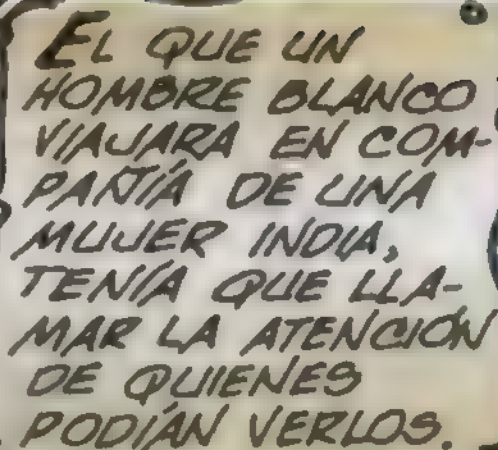 EL QUE UN
HOMBRE BLANCO
VIAJARA EN COM-
PAÑÍA DE UNA
MUJER INDIA,
TENÍA QUE LLA-
MAR LA ATENCIÓN
DE QUIENES
PODÍAN VERLOS.